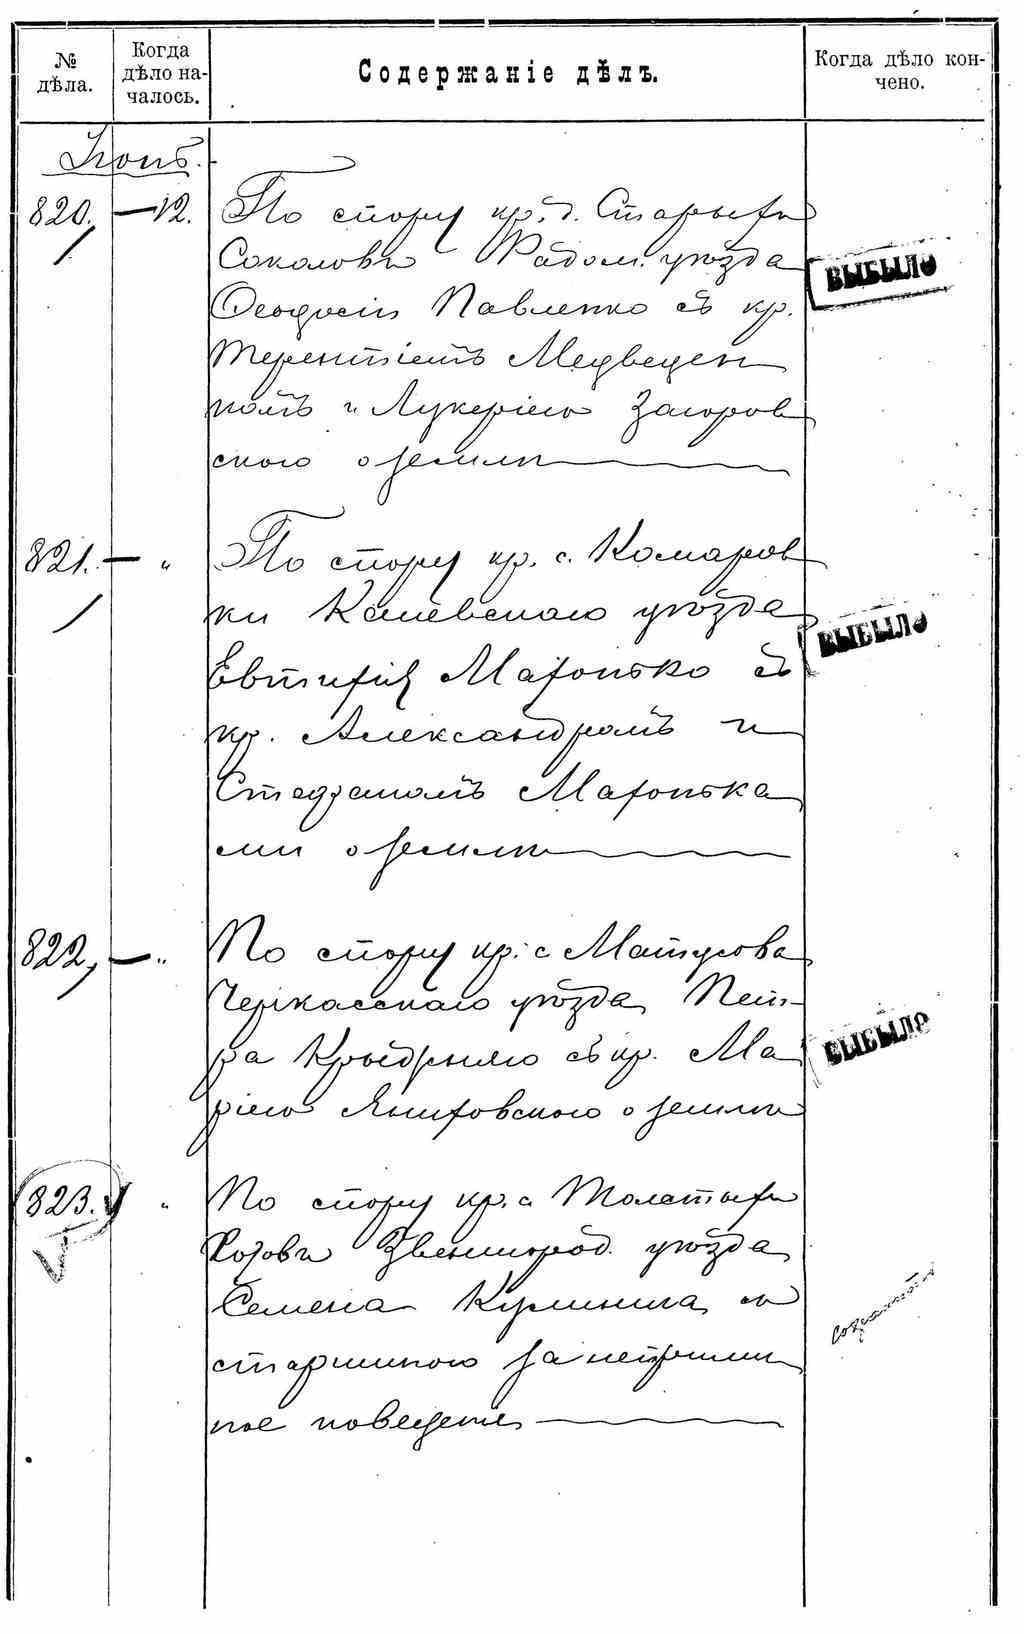 № дѣла.
Когда дѣло на-
чалось.
Содержаніе дѣлъ.
Когда дѣло кон-
чено.
820. — 12. По спору кр. д. Старыхъ
Соколовъ Радом. уѣзда
Ѳеодосіи Павленко съ кр.
Терентіемъ Медведен
комъ и Лукеріею Загоров
скою о землѣ
ВЫБЫЛО
821. — " По спору кр. с. Комаров
ки Каневскаго уѣзда
Евтихія Махонько съ
кр. Александромъ и
Стефаномъ Махонька
ми о землѣ
ВЫБЫЛО
822, — " По спору кр. с Матусова
Черкасскаго уѣзда Пет-
ра съ кр. Ма
ріею Яниховскою о землѣ
ВЫБЫЛО
823. " По спору кр. с Толстыхъ
Роговъ Звенигород. уѣзда
Семена Кулинича со
старшиною за неприлич
ное поведеніе